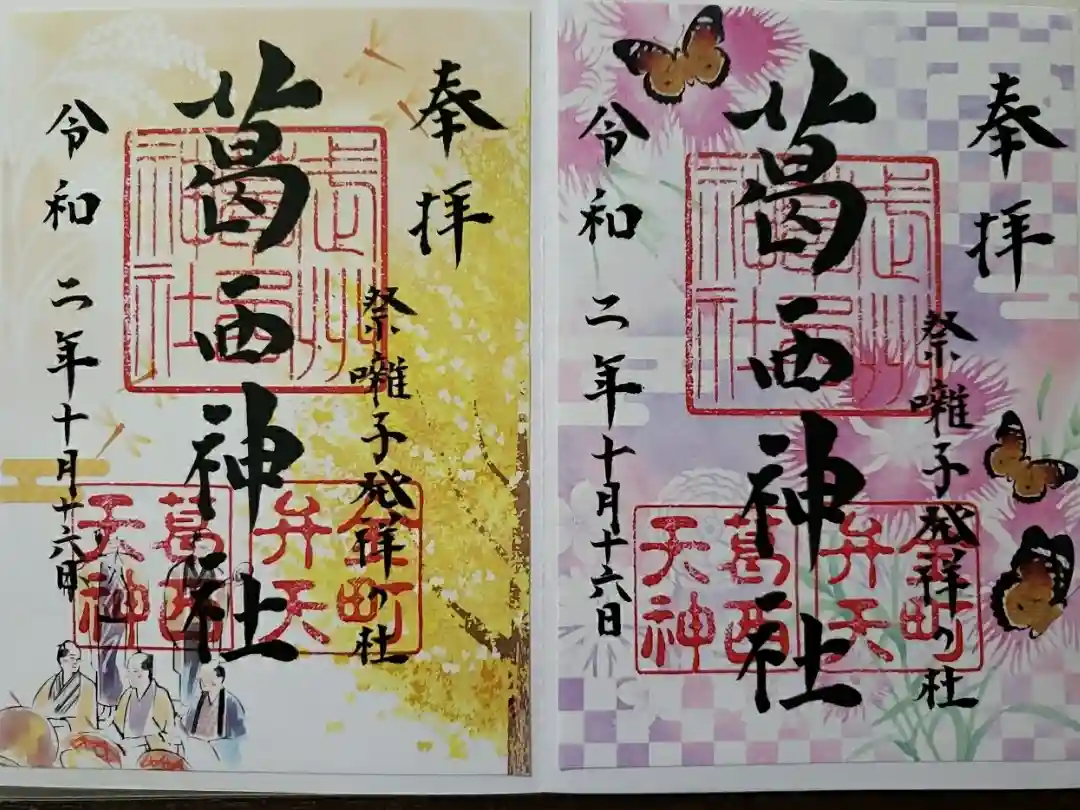 奉拝
祭囃子発祥の社
葛西神社
武州
葛西
神社
金町
弁天
葛西
天神
令和二年十月十六日
奉拝
祭囃子発祥の社
葛西神社
武州
葛西
神社
金町
弁天
葛西
天神
令和二年十月十六日